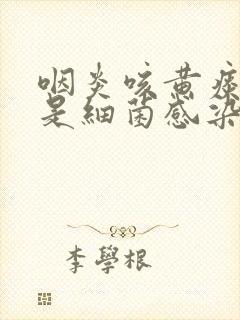 咽炎咳黄痰
是细菌感染
李學根